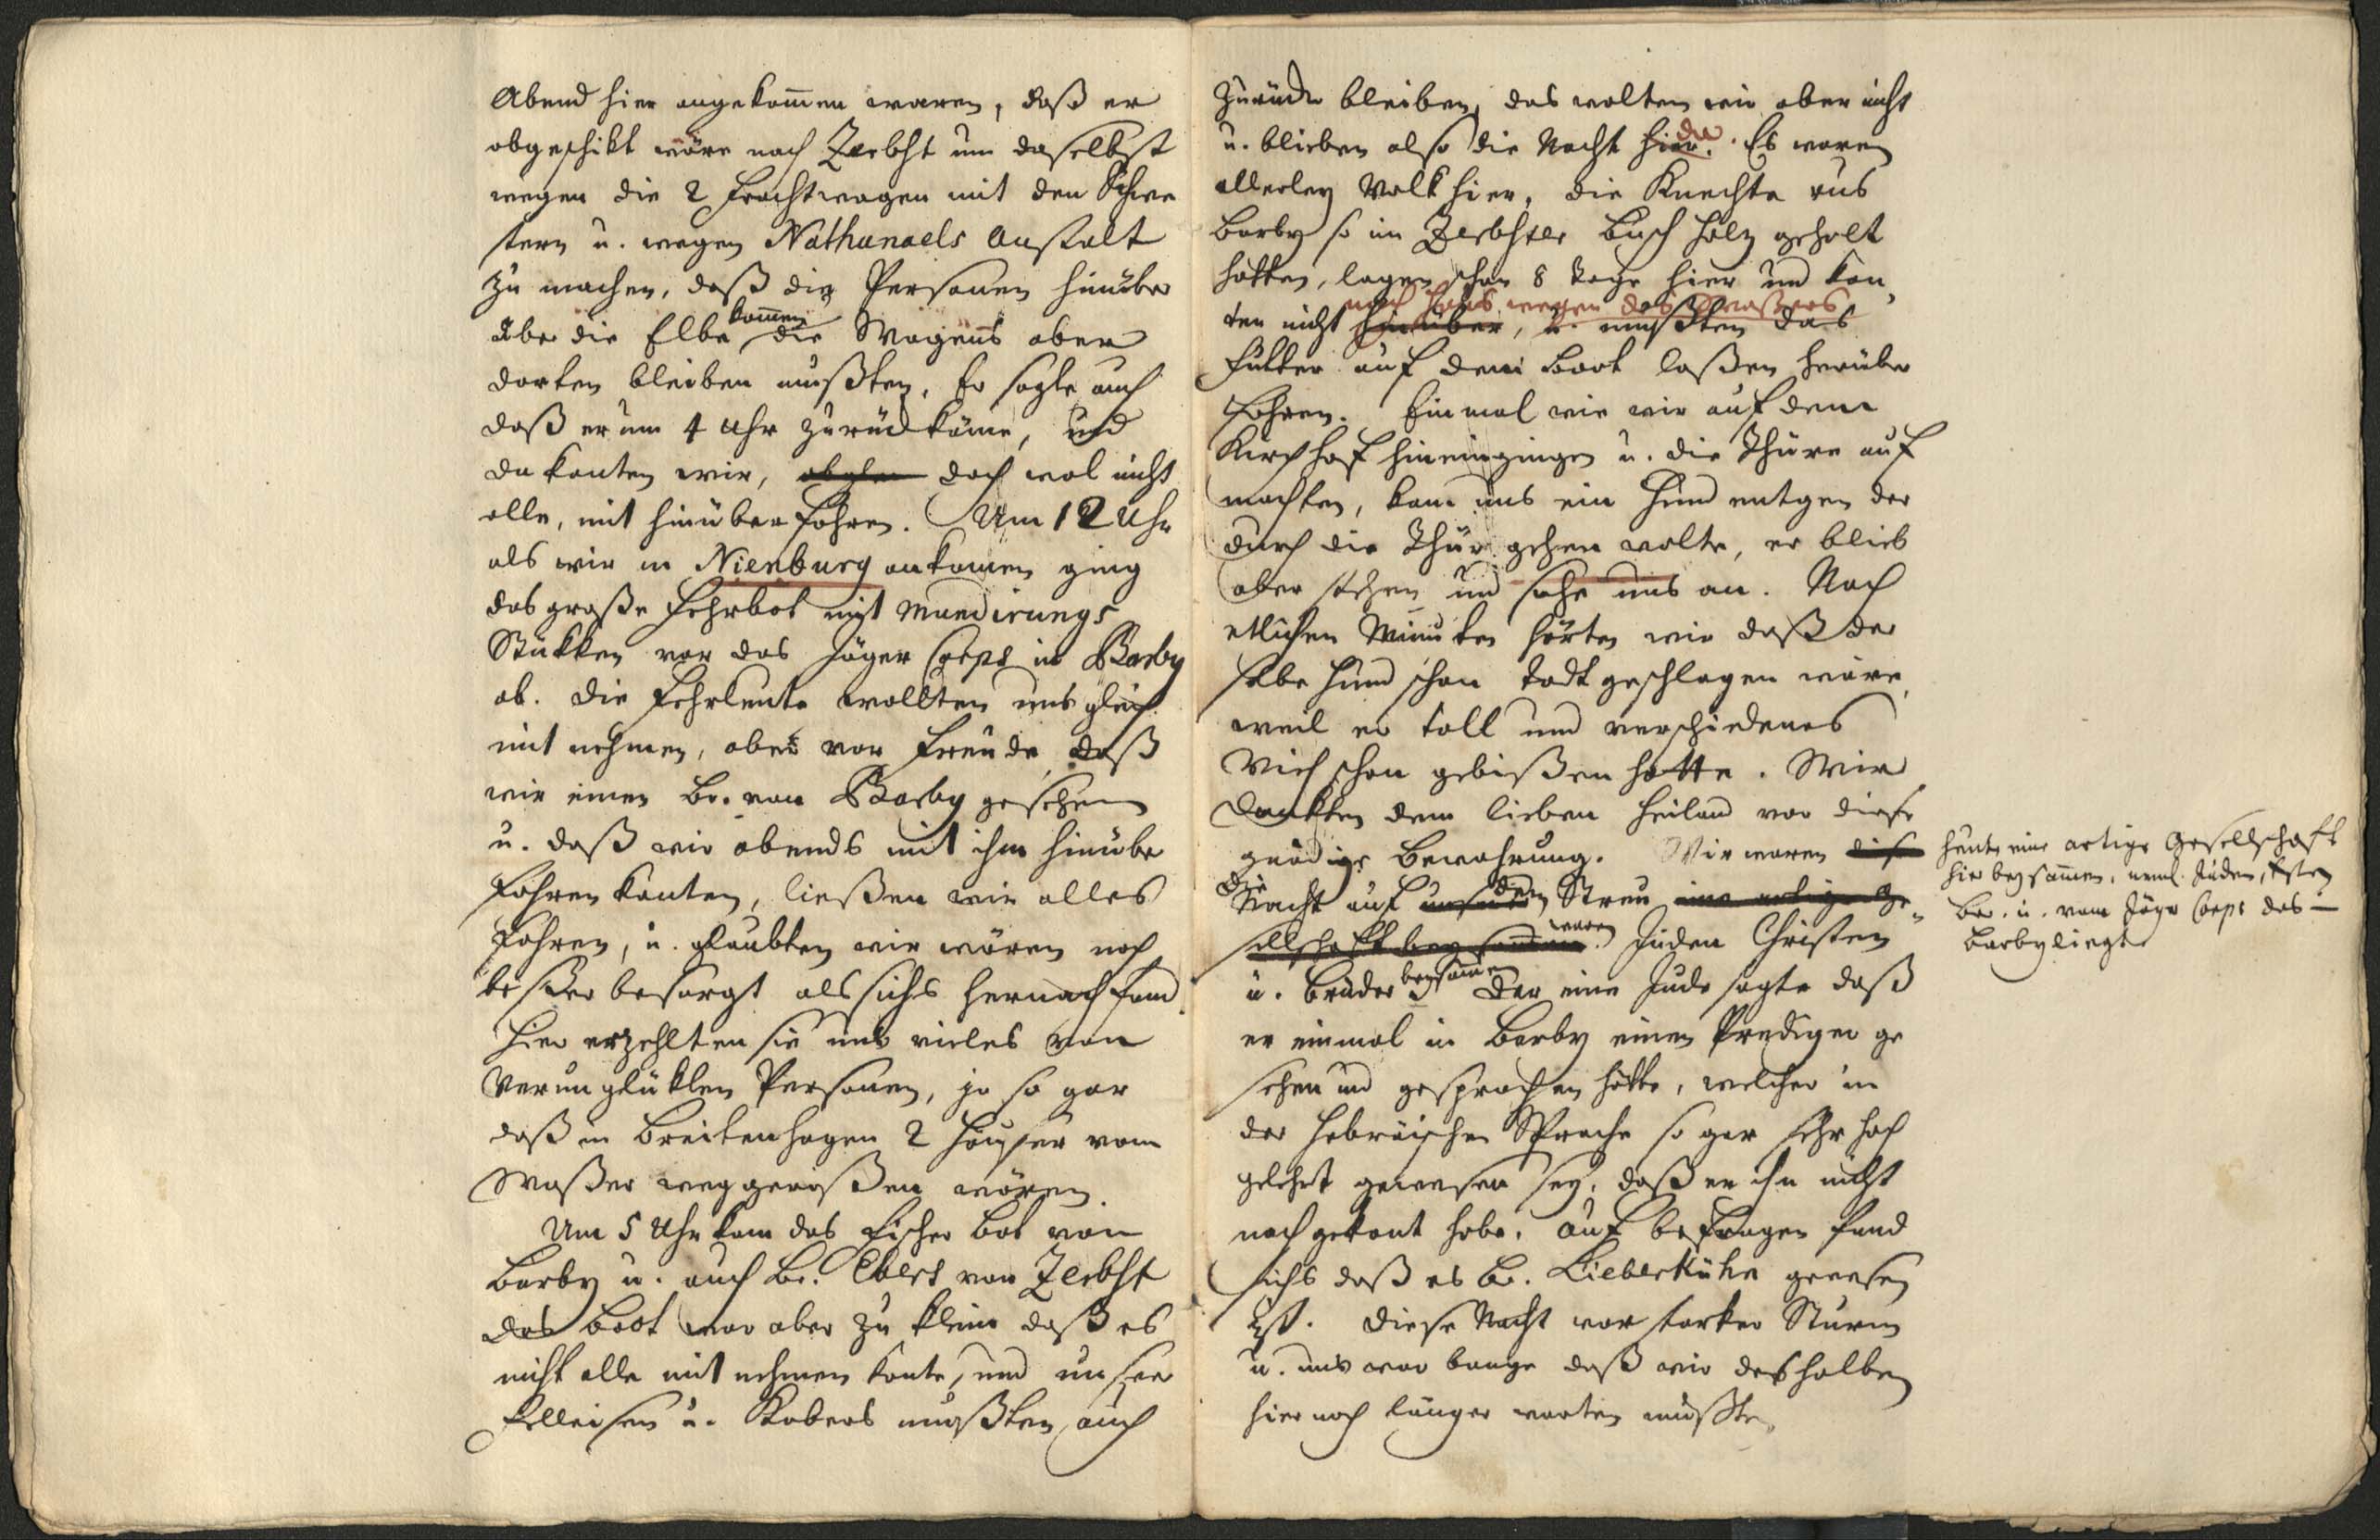 Abend hier angekom̄en waren, daß er
abgeschikt wäre nach Zerbst um daselbst
wegen die 2 Frachtwagen mit den Schwe
stern u. wegen Nathanaels Anstalt
zu machen, daß die Personen hinüber
über die Elbe kom̄en die Wagens aber
dorten bleiben mußten. Er sagte auch
daß er um 4 Uhr zurük käme, und
da konten wir, doch wol nicht
alle, mit hinüber fahren. Um 12 Uhr
als wir in Nienburg ankamen ging
das große Fehrbot mit Mundirungs
Stükken vor das Jäger Corps in Barby
ab. Die Fehrleute wollten uns gleich
mit nehmen, aber vor Freude daß
wir einen Br. von Barby gesehen
u. daß wir abends mit ihm hinüber
fahren konten, ließen wir alles
fahren, u. glaubten wir wären noch
beßer besorgt als sichs hernach fand.
Hier erzehlten sie uns vieles von
Verunglükten Personen, ja so gar
daß in Breitenhagen 2 Häuser vom
Waßer weggerißen wären.
Um 5 Uhr kam das Fischer bot von
Barby u. auch Br. Ebert von Zerbst
das Boot war aber zu klein daß es
nicht alle mit nehmen konte, und unsere
Felleisen u. Kobers mußten auch
zurück bleiben, das wolten wir aber nicht
u. blieben also die Nacht hier. da. Es waren
allerley Volk hier, die Knechte aus
Barby so im Zerbster Busch Holz geholt
hatten, lagen schon 8 Tage hier und kon,
ten nicht hinüber, nach Haus wegen des Waßers u. mußten das
Futter auf dem Boot laßen herüber
fahren. Einmal wie wir auf dem
Kirchhof hineingingen u. die Thüre auf
machten, kam uns ein Hund entgen der
durch die Thür gehen wolte, er blieb
aber stehen und sahe uns an. Nach
etlichen Minuten hörten wir daß der
selbe Hund schon todt geschlagen wäre,
weil er toll und verschiedenes
Vieh schon gebißen hatte. Wir
dankten dem lieben Heiland vor diese
gnädige Bewahrung. Wir waren diese
die Nacht auf unsern den Streu eine artige Ge-
sellschaft beysammen waren Juden Christen
u. Brüder beysam̄en Der eine Jude sagte daß
er einmal in Barby einen Prediger ge
sehen und gesprochen hätte, welcher in
der Hebräischen Sprache so gar sehr hoch
gelehrt gewesen sey, daß er ihn nicht
nach gekont habe. Auf befragen fand
sichs daß es Br. Lieberkühn gewesen
ist. Diese Nacht war starker Sturm
u. uns war bange daß wir deshalben
hier noch länger warten mußten
heute eine artige Gesellschaft
hier beysam̄en, neml. Juden,
Br. u. vom Jäger Corps das in
Barby liegt